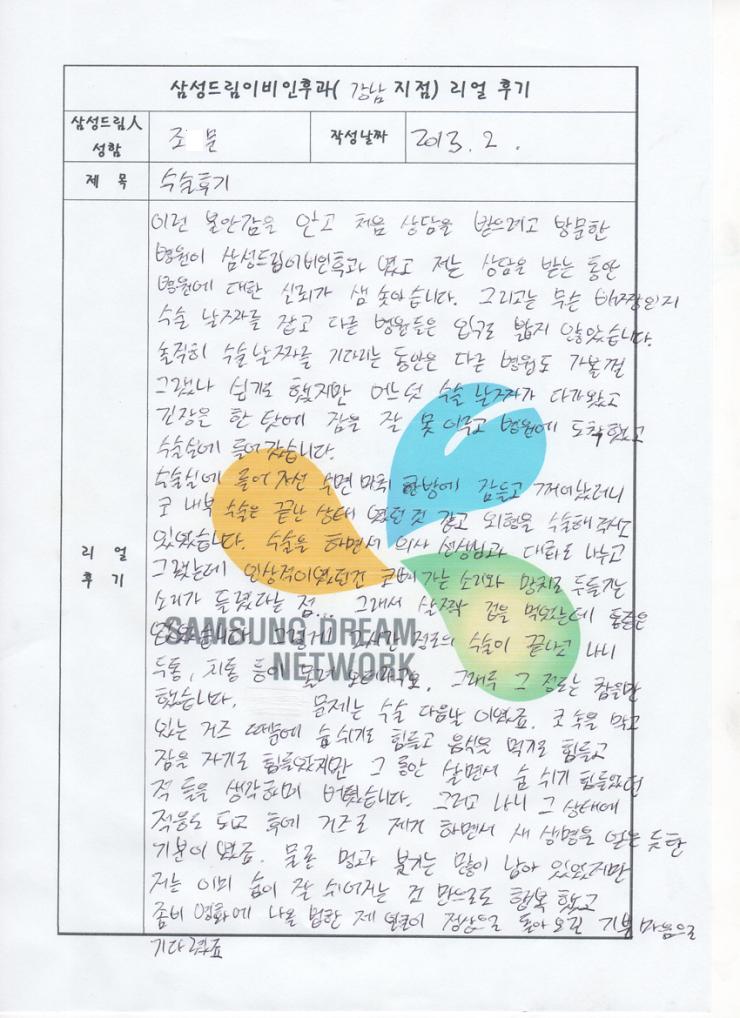 삼성드림이비인후과( 강남 지점) 리얼 후기
삼성드림人 성함
조 문
작성날짜
2013. 2 .
제 목
수술후기
리 얼 후 기
이런 불안감을 안고 처음 상담을 받으려고 방문한
병원이 삼성드림이비인후과 였고 저는 상담을 받는 동안
병원에 대한 신뢰가 샘 솟았습니다. 그리고는 무슨 배짱인지
수술 날짜를 잡고 다른 병원들은 입구로 밟지 않았습니다.
솔직히 수술날짜를 기다리는 동안은 다른 병원도 가볼껄
그랬나 싶기도 했지만 어느덧 수술 날짜가 다가왔고
긴장을 한 탓에 잠을 잘 못 이루고 병원에 도착했고
수술실에 들어갔습니다.
수술실에 들어 자선 수면 마취 한방에 잠들고 깨어났더니
코 내부 수술은 끝난 상태 였던것 같고 외형을 수술해 주시고
있었습니다. 수술을 하면서 의사 선생님과 대화도 나누고
그랬는데 인상적이였던건 코뼈 가는 소리와 망치로 두들기는
소리가 들렸다는 점. 그래서 살짝 겁을 먹었는데 통증은
없었습니다. 그렇게 2시간 정도의 수술이 끝나고 나니
두통, 치통 등이 몰려 오더라구요. 그래두 그 정도는 참을만
했습니다. 문제는 수술 다음날 이였죠. 코 속을 막고
있는 거즈 때문에 숨쉬기도 힘들고 음식을 먹기도 힘들고
잠을 자기도 힘들었지만 그 동안 살면서 숨 쉬기 힘들었던
적 들을 생각하며 버텼습니다. 그리고 나니 그 상태에
적응도 되고 후에 거즈도 제거 하면서 새 생명을 얻은 듯한
기분이 였죠. 물론 멍과 붓기는 많이 남아 있었지만
저는 이미 숨이 잘 쉬어지는 것 만으로도 행복 했고
좀비 영화에 나올 법한 제 얼굴이 정상으로 돌아오길 기쁜 마음으로
기다렸죠
SAMSUNG DREAM
NETWORK